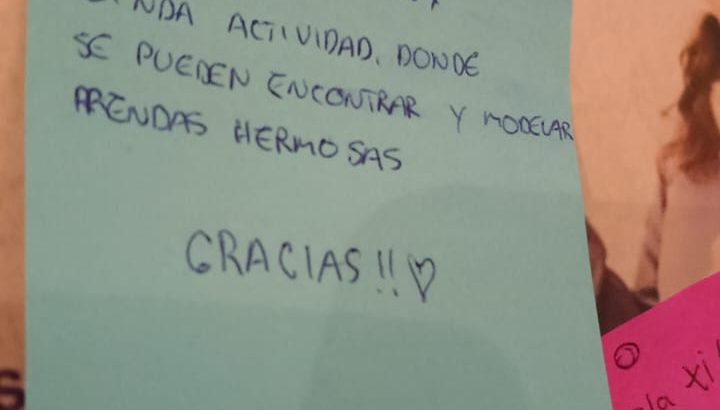 ACTIVIDAD. DONDE
SE PUEDEN ENCONTRAR Y MODELAR
PRENDAS HERMOSAS
GRACIAS!!♡